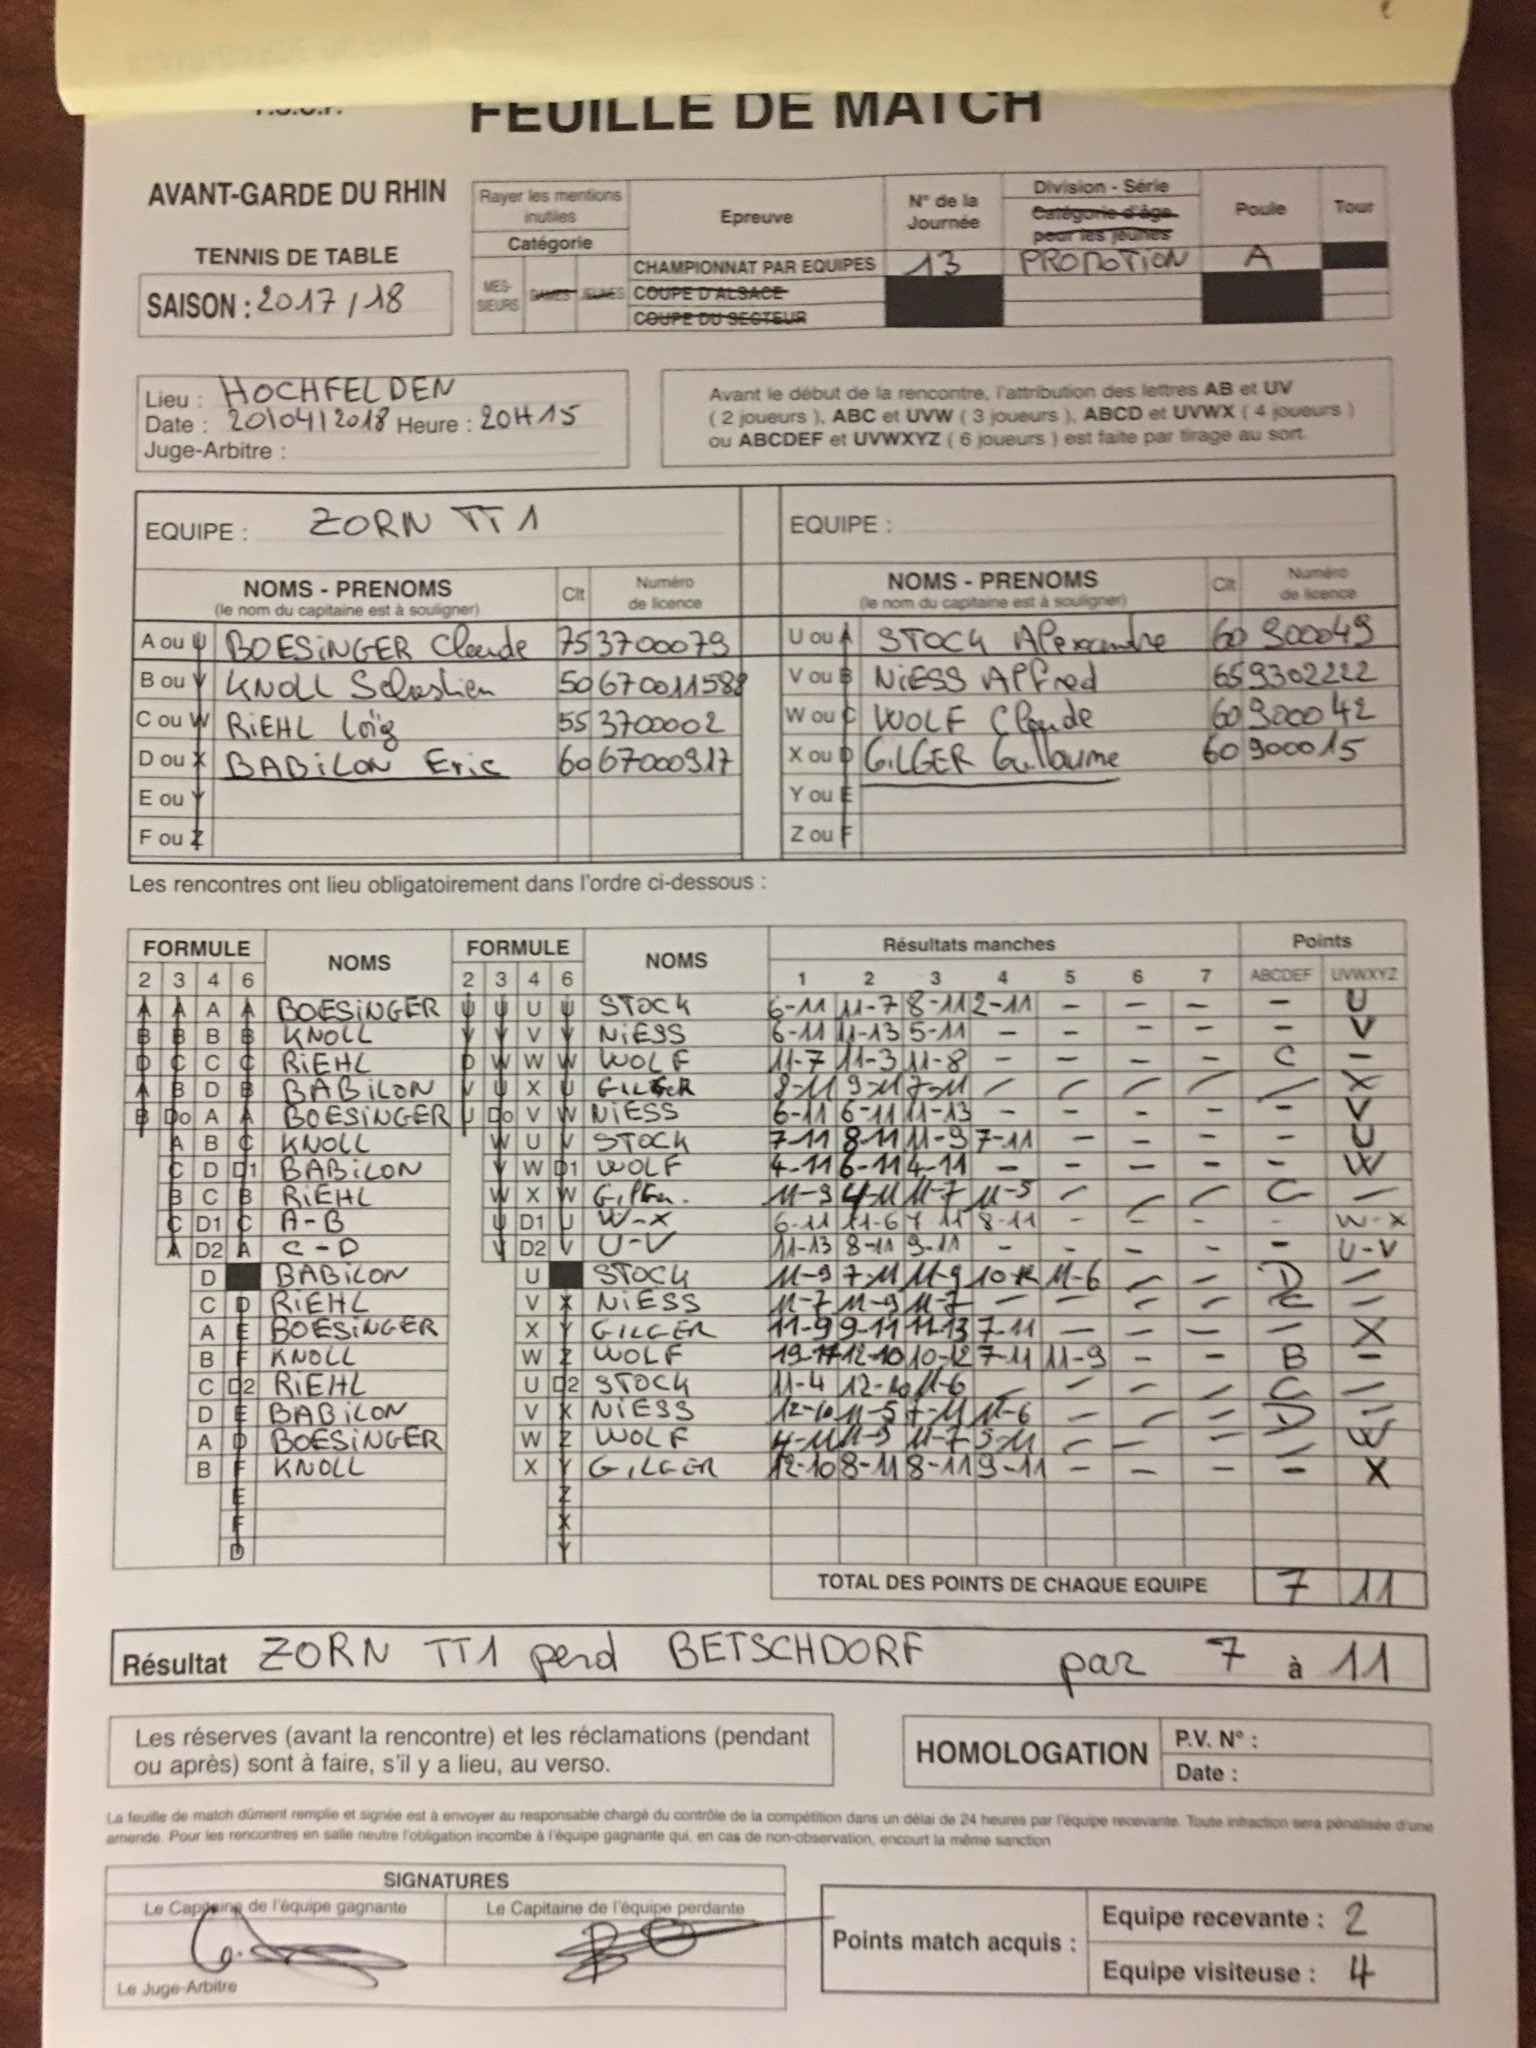 FEUILLE DE MATCH
AVANT-GARDE DU RHIN
TENNIS DE TABLE
SAISON : 2017/18
Rayer les mentions inutiles
Catégorie
MES-SIEURS DAMES JEUNES
Epreuve
N° de la Journée
Division - Série
Catégorie d'âge pour les jeunes
Poule
Tour
CHAMPIONNAT PAR EQUIPES 13 PROMOTION A
COUPE D'ALSACE
COUPE DU SECTEUR
Lieu : HOCHFELDEN
Date : 20/04/2018 Heure : 20H15
Juge-Arbitre :
Avant le début de la rencontre, l'attribution des lettres AB et UV
( 2 joueurs ), ABC et UVW ( 3 joueurs ), ABCD et UVWX ( 4 joueurs )
ou ABCDEF et UVWXYZ ( 6 joueurs ) est faite par tirage au sort.
EQUIPE : ZORN TT 1
EQUIPE :
NOMS - PRENOMS Clt Numéro de licence
(le nom du capitaine est à souligner)
NOMS - PRENOMS Clt Numéro de licence
(le nom du capitaine est à souligner)
A ou U BOESINGER Claude 75 3700079 U ou A STOCK Alexandre 60 900049
B ou V KNOLL Sébastien 50 670011588 V ou B NIESS Alfred 65 9302222
C ou W RIEHL Loïg 55 3700002 W ou C WOLF Claude 60 900042
D ou X BABILON Eric 60 67000917 X ou D GILGER Guillaume 60 900015
E ou Y Y ou E
F ou Z Z ou F
Les rencontres ont lieu obligatoirement dans l'ordre ci-dessous :
FORMULE NOMS FORMULE NOMS Résultats manches Points
2 3 4 6 2 3 4 6 1 2 3 4 5 6 7 ABCDEF UVWXYZ
A A A A BOESINGER U U U U STOCK 6-11 11-7 8-11 2-11 - - - - U
B B B B KNOLL V V V V NIESS 6-11 11-13 5-11 - - - - - V
D C C C RIEHL D W W W WOLF 11-7 11-3 11-8 - - - - C -
A B D B BABILON V U X U GILGER 8-11 9-11 7-11 - - - - - X
B Do A A BOESINGER U Do V W NIESS 6-11 6-11 11-13 - - - - - V
A B C KNOLL W U V STOCK 7-11 8-11 11-9 7-11 - - - - U
C D D1 BABILON V W D1 WOLF 4-11 6-11 4-11 - - - - - W
B C B RIEHL W X W Gilger. 11-9 4-11 11-7 11-5 - - - C -
C D1 C A-B U D1 U W-X 6-11 11-6 7-11 8-11 - - - - W-X
A D2 A C-D V D2 V U-V 11-13 8-11 9-11 - - - - - U-V
D BABILON U STOCK 11-9 7-11 11-9 10-12 11-6 - - D -
C D RIEHL V X NIESS 11-7 11-9 11-7 - - - - C -
A E BOESINGER X Y GILGER 11-9 9-11 11-13 7-11 - - - - X
B F KNOLL W Z WOLF 19-17 12-10 10-12 7-11 11-9 - - B -
C D2 RIEHL U D2 STOCK 11-4 12-10 11-6 - - - - C -
D E BABILON V X NIESS 12-10 11-5 7-11 11-6 - - - D -
A D BOESINGER W Z WOLF 4-11 11-9 11-7 5-11 - - - - W
B F KNOLL X Y GILGER 12-10 8-11 8-11 9-11 - - - - X
E Z
F X
D Y
TOTAL DES POINTS DE CHAQUE EQUIPE 7 11
Résultat ZORN TT1 perd BETSCHDORF par 7 à 11
Les réserves (avant la rencontre) et les réclamations (pendant
ou après) sont à faire, s'il y a lieu, au verso.
HOMOLOGATION
P.V. N° :
Date :
La feuille de match dûment remplie et signée est à envoyer au responsable chargé du contrôle de la compétition dans un délai de 24 heures par l'équipe recevante. Toute infraction sera pénalisée d'une
amende. Pour les rencontres en salle neutre l'obligation incombe à l'équipe gagnante qui, en cas de non-observation, encourt la même sanction
SIGNATURES
Le Capitaine de l'équipe gagnante Le Capitaine de l'équipe perdante
Le Juge-Arbitre
Points match acquis :
Equipe recevante : 2
Equipe visiteuse : 4